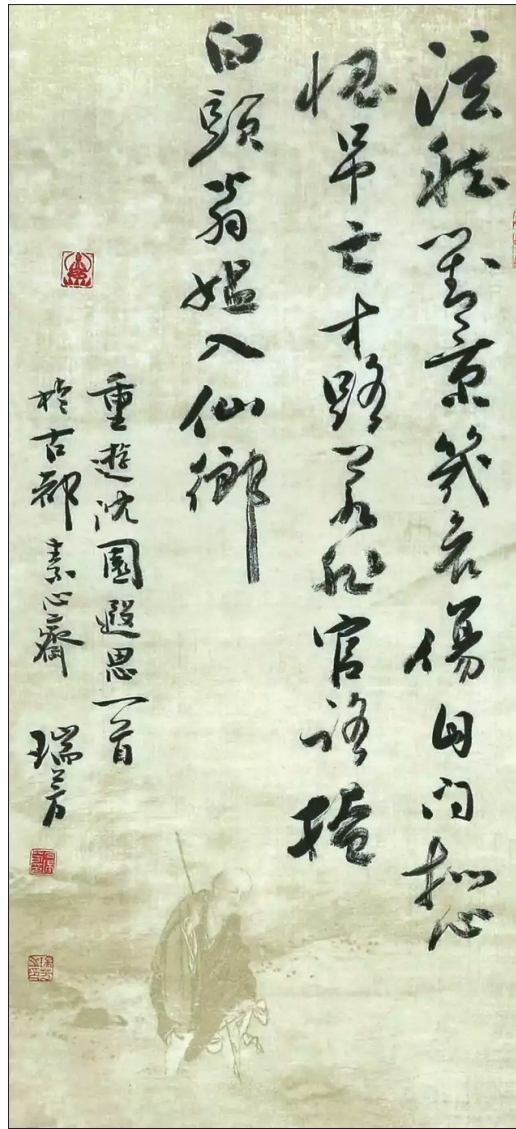 泫然對景幾哀傷自問捫心
愧吊亡才路若非官路掩
白頭翁媪入仙鄉
重遊沈園遐思一首
於古都素心齋 瑞芳